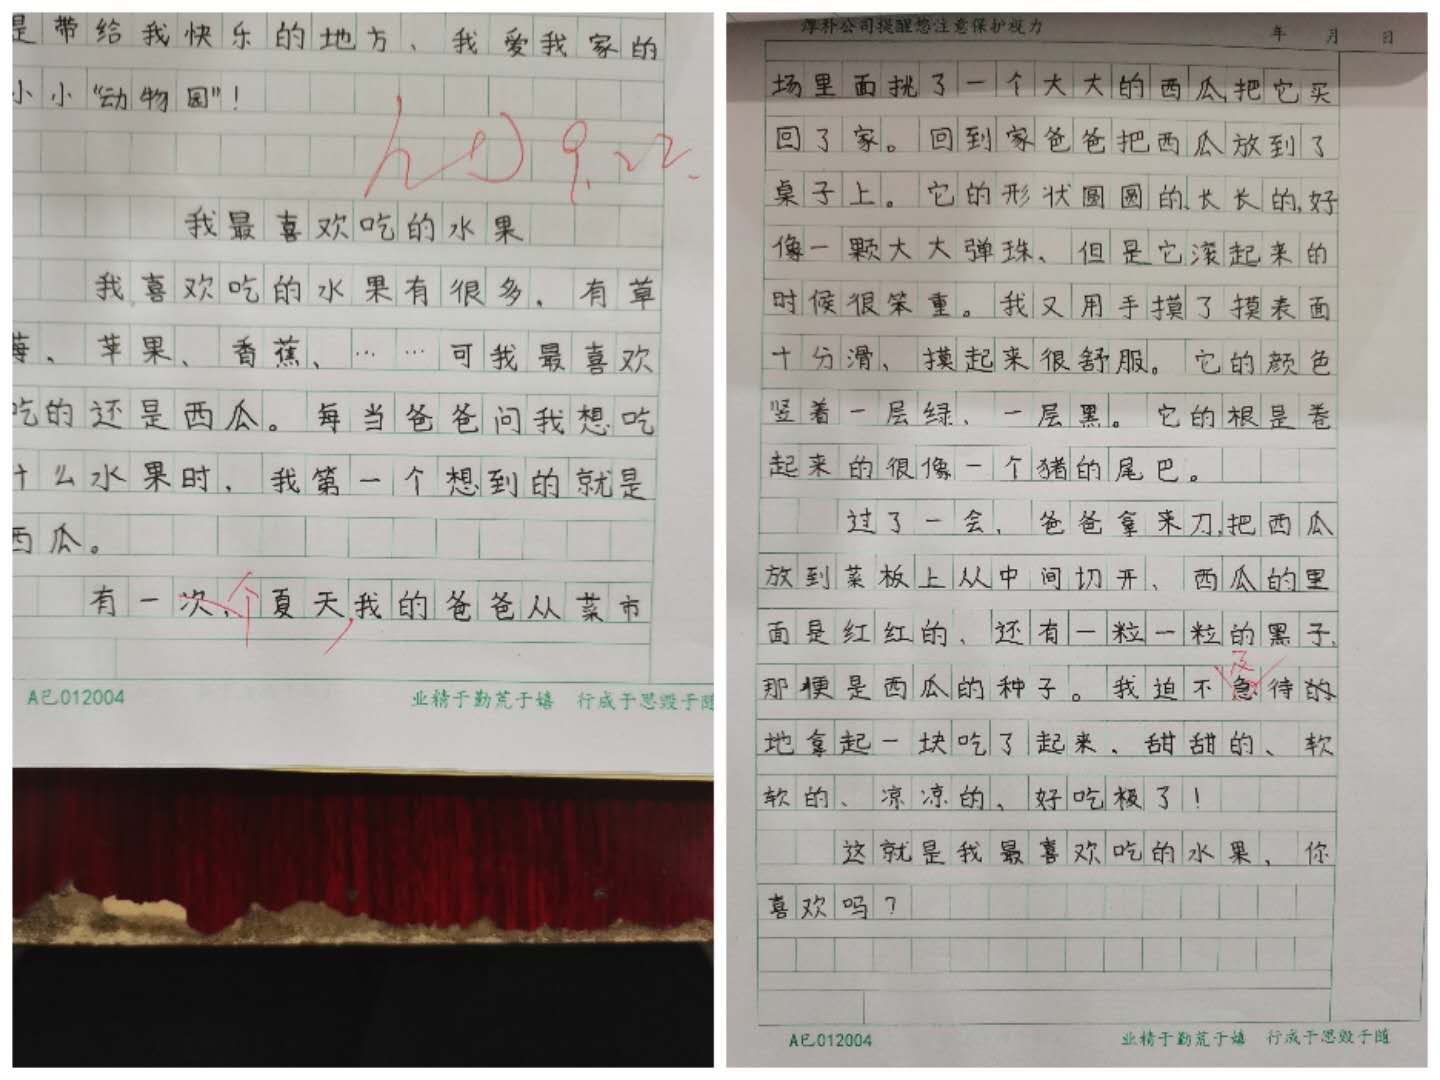 是带给我快乐的地方、我爱我家的
小小“动物园”！
9.22.
我最喜欢吃的水果
我喜欢吃的水果有很多，有草
莓、苹果、香蕉、……可我最喜欢
吃的还是西瓜。每当爸爸问我想吃
什么水果时，我第一个想到的就是
西瓜。
有一次、个夏天，我的爸爸从菜市
A巳012004 业精于勤荒于嬉 行成于思毁于随
淳朴公司提醒您注意保护视力 年 月 日
场里面挑了一个大大的西瓜，把它买
回了家。回到家爸爸把西瓜放到了
桌子上。它的形状圆圆的、长长的，好
像一颗大大弹珠、但是它滚起来的
时候很笨重。我又用手摸了摸表面
十分滑、摸起来很舒服。它的颜色
竖着一层绿、一层黑。它的根是卷
起来的很像一个猪的尾巴。
过了一会、爸爸拿来刀，把西瓜
放到菜板上从中间切开、西瓜的里
面是红红的、还有一粒一粒的黑子，
及
那便是西瓜的种子。我迫不急待的
地拿起一块吃了起来、甜甜的、软
软的、凉凉的、好吃极了！
这就是我最喜欢吃的水果、你
喜欢吗？
A巳012004 业精于勤荒于嬉 行成于思毁于随